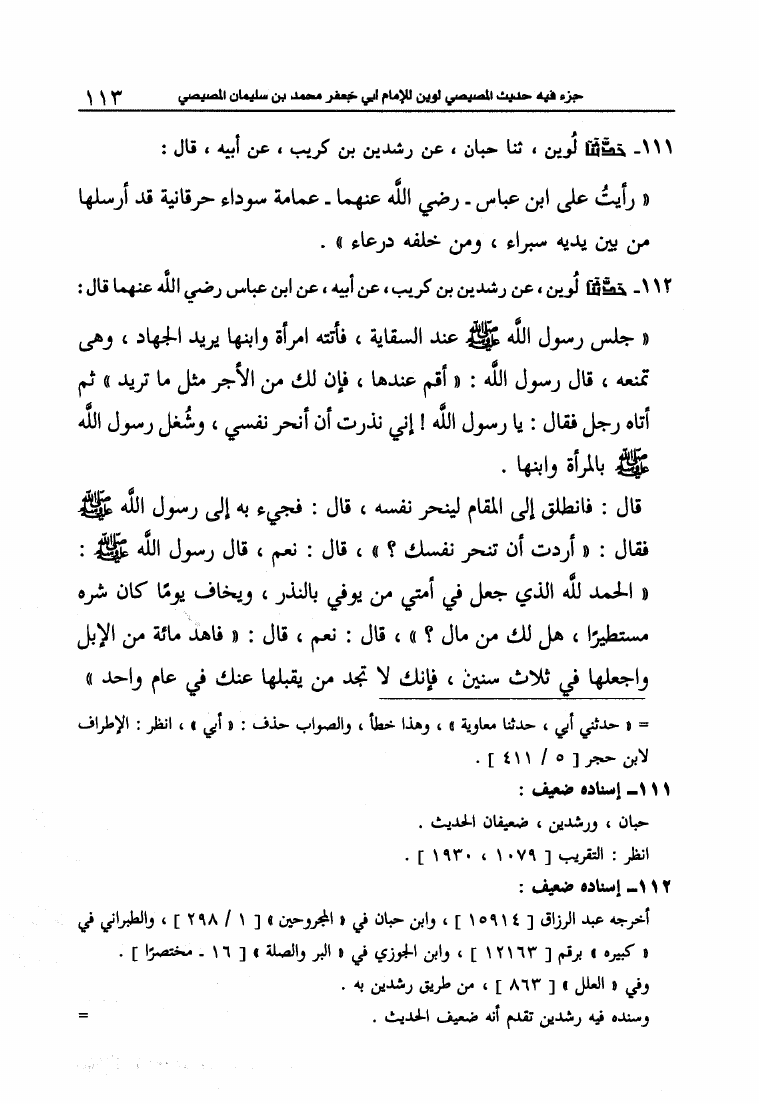 جزء فيه حديث المصيصي لوين للإمام ابي جعفر محمد بن سليمان المصيصي ١١٣
١١١ـ حَدَّثَنَا لُوين ، ثنا حبان ، عن رشدين بن كريب ، عن أبيه ، قال :
« رأيتُ على ابن عباس ـ رضي اللَّه عنهما ـ عمامة سوداء حرقانية قد أرسلها
من بين يديه سبراء ، ومن خلفه درعاء » .
١١٢ـ حَدَّثَنَا لُوين ، عن رشدين بن كريب ، عن أبيه ، عن ابن عباس رضي اللَّه عنهما قال :
« جلس رسول اللَّه ﷺ عند السقاية ، فأتته امرأة وابنها يريد الجهاد ، وهى
تمنعه ، قال رسول اللَّه : « أقم عندها ، فإن لك من الأجر مثل ما تريد » ثم
أتاه رجل فقال : يا رسول اللَّه ! إني نذرت أن أنحر نفسي ، وشُغل رسول اللَّه
ﷺ بالمرأة وابنها .
قال : فانطلق إلى المقام لينحر نفسه ، قال : فجيء به إلى رسول اللَّه ﷺ
فقال : « أردت أن تنحر نفسك ؟ » ، قال : نعم ، قال رسول اللَّه ﷺ :
« الحمد للَّه الذي جعل في أمتي من يوفي بالنذر ، ويخاف يومًا كان شره
مستطيرًا ، هل لك من مال ؟ » ، قال : نعم ، قال : « فاهد مائة من الإبل
واجعلها في ثلاث سنين ، فإنك لا تجد من يقبلها عنك في عام واحد »
= « حدثني أبي ، حدثنا معاوية » ، وهذا خطأ ، والصواب حذف : « أبي » ، انظر : الإطراف
لابن حجر [ ٥ / ٤١١ ] .
١١١ـ إسناده ضعيف :
حبان ، ورشدين ، ضعيفان الحديث .
انظر : التقريب [ ١٠٧٩ ، ١٩٣٠ ] .
١١٢ـ إسناده ضعيف :
أخرجه عبد الرزاق [ ١٥٩١٤ ] ، وابن حبان في « المجروحين » [ ١ / ٢٩٨ ] ، والطبراني في
« كبيره » برقم [ ١٢١٦٣ ] ، وابن الجوزي في « البر والصلة » [ ١٦ ـ مختصرًا ] .
وفي « العلل » [ ٨٦٣ ] ، من طريق رشدين به .
وسنده فيه رشدين تقدم أنه ضعيف الحديث . =